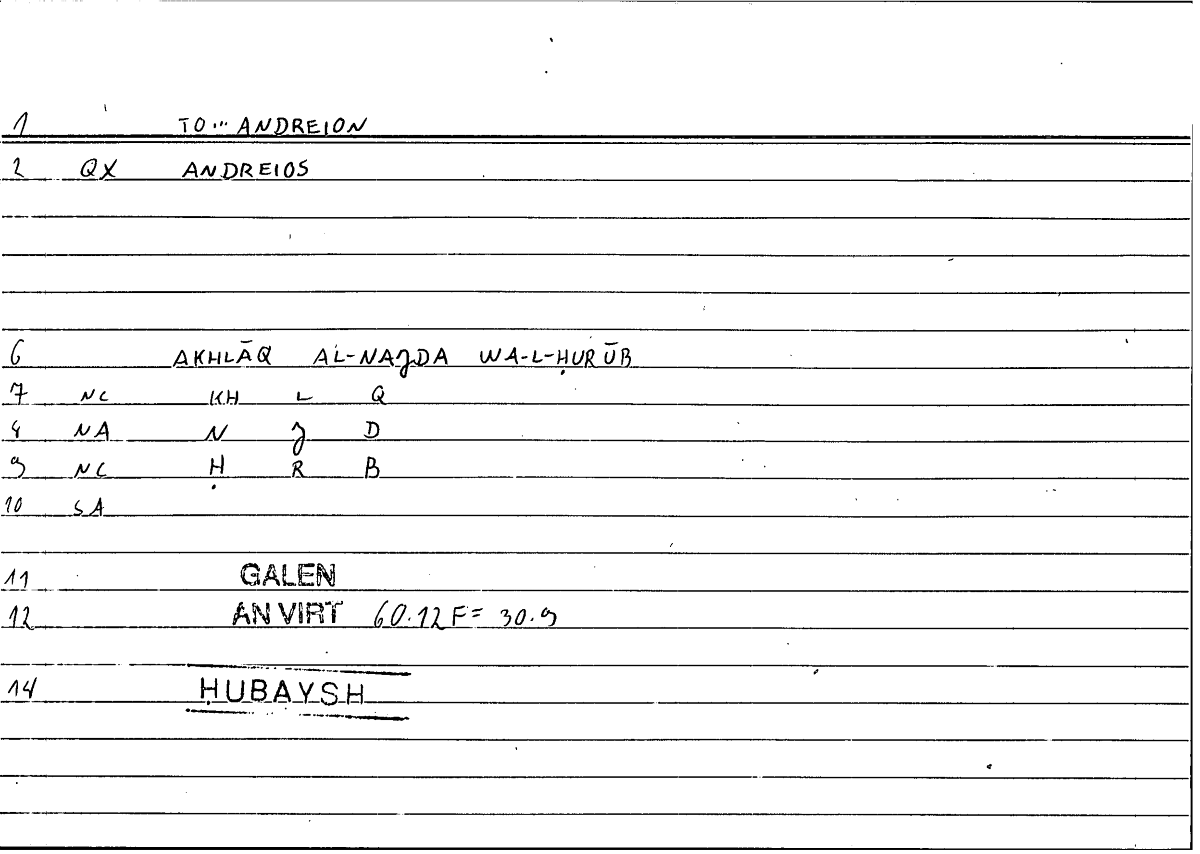 1 TO... ANDREION
2 QX ANDREIOS
6 AKHLĀQ AL-NAJDA WA-L-ḤURŪB
7 NC KH L Q
8 NA N J D
9 NC Ḥ R B
10 SA
11 GALEN
12 AN VIRT 60.12 F= 30.9
14 ḤUBAYSH